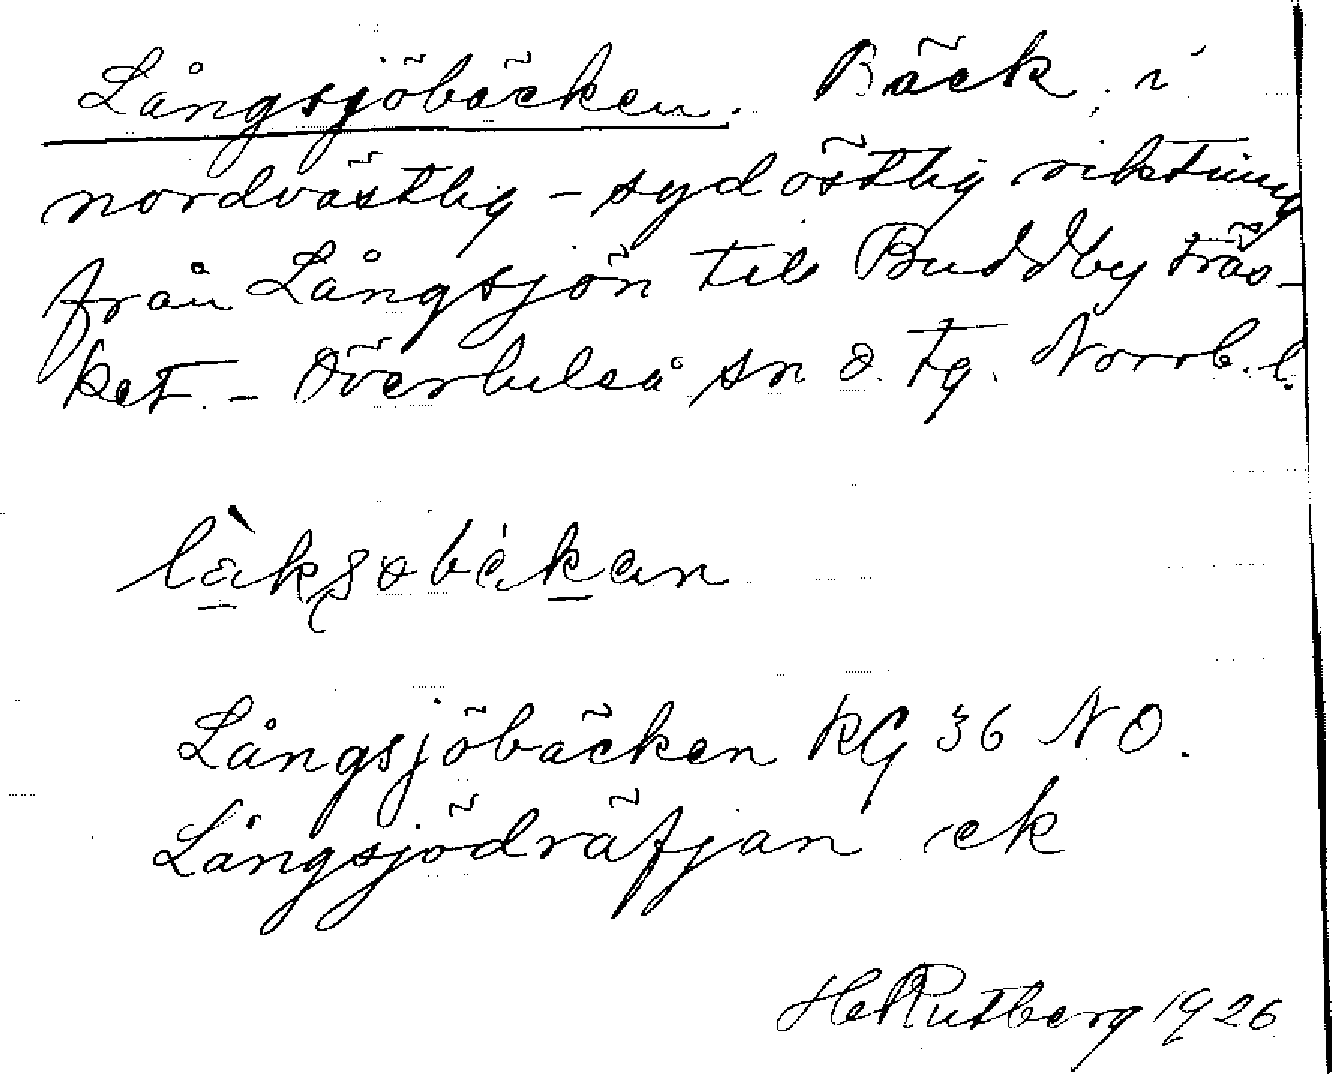 Långsjöbäcken. Bäck i
nordvästlig - sydöstlig riktning
från Långsjön till Buddbyträs-
ket. - Överluleå sn o. tg. Norrb. l.
Långsjöbäcken KG 36 NO.
Långsjödräfjan ek
He Rutberg 1926